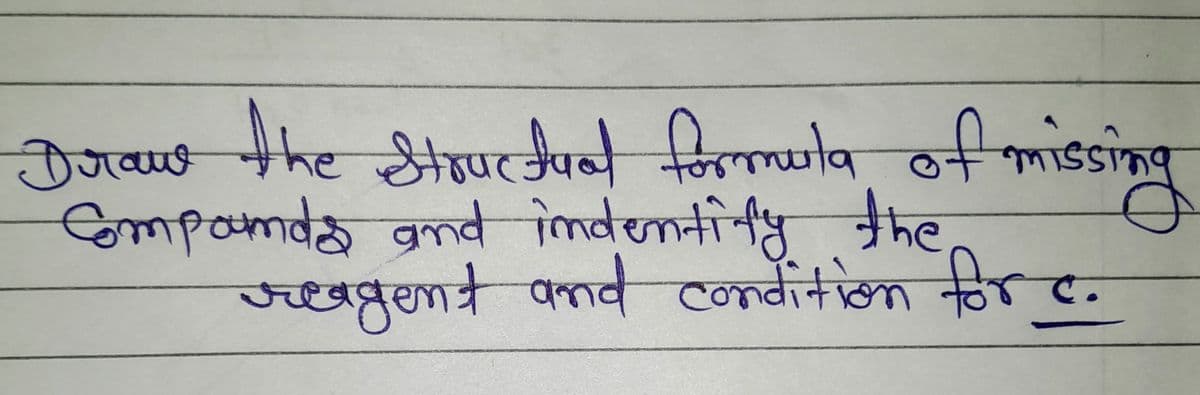 Draw the Structual formula of missing
Compounds and indentify the
reagent and condition for c.